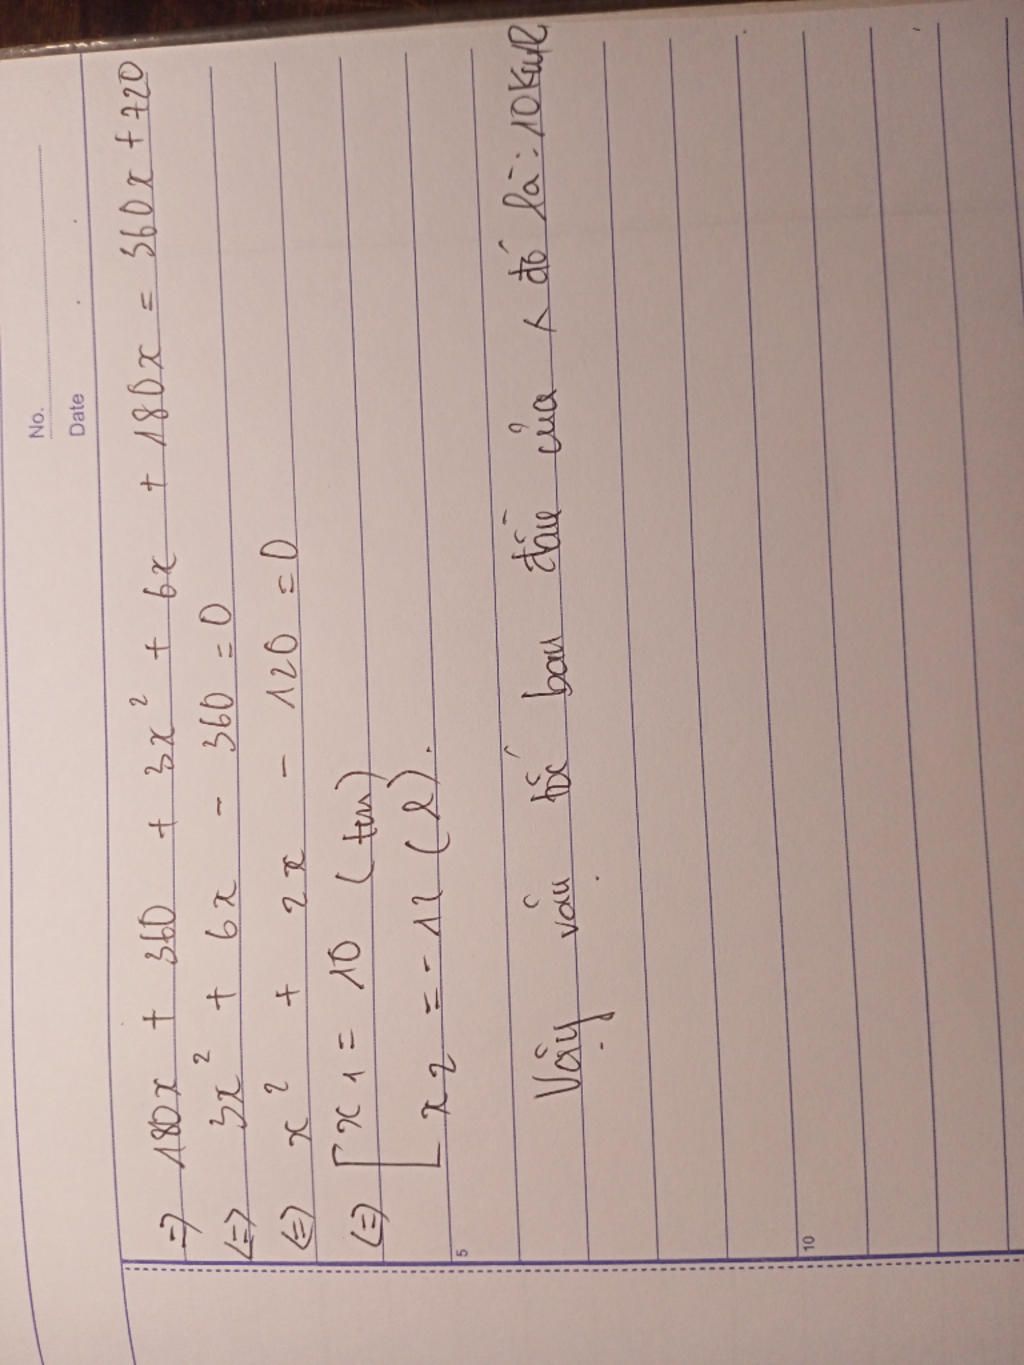 No.
Date
=) 180x + 360 + 3x² + 6x + 180x = 360x + 720
(=) 3x² + 6x - 360 = 0
(=) x² + 2x - 120 = 0
(=) [ x₁ = 10 (tm)
[ x₂ = -12 (l).
5
Vậy vận tốc ban đầu của x đó là: 10km/h
10